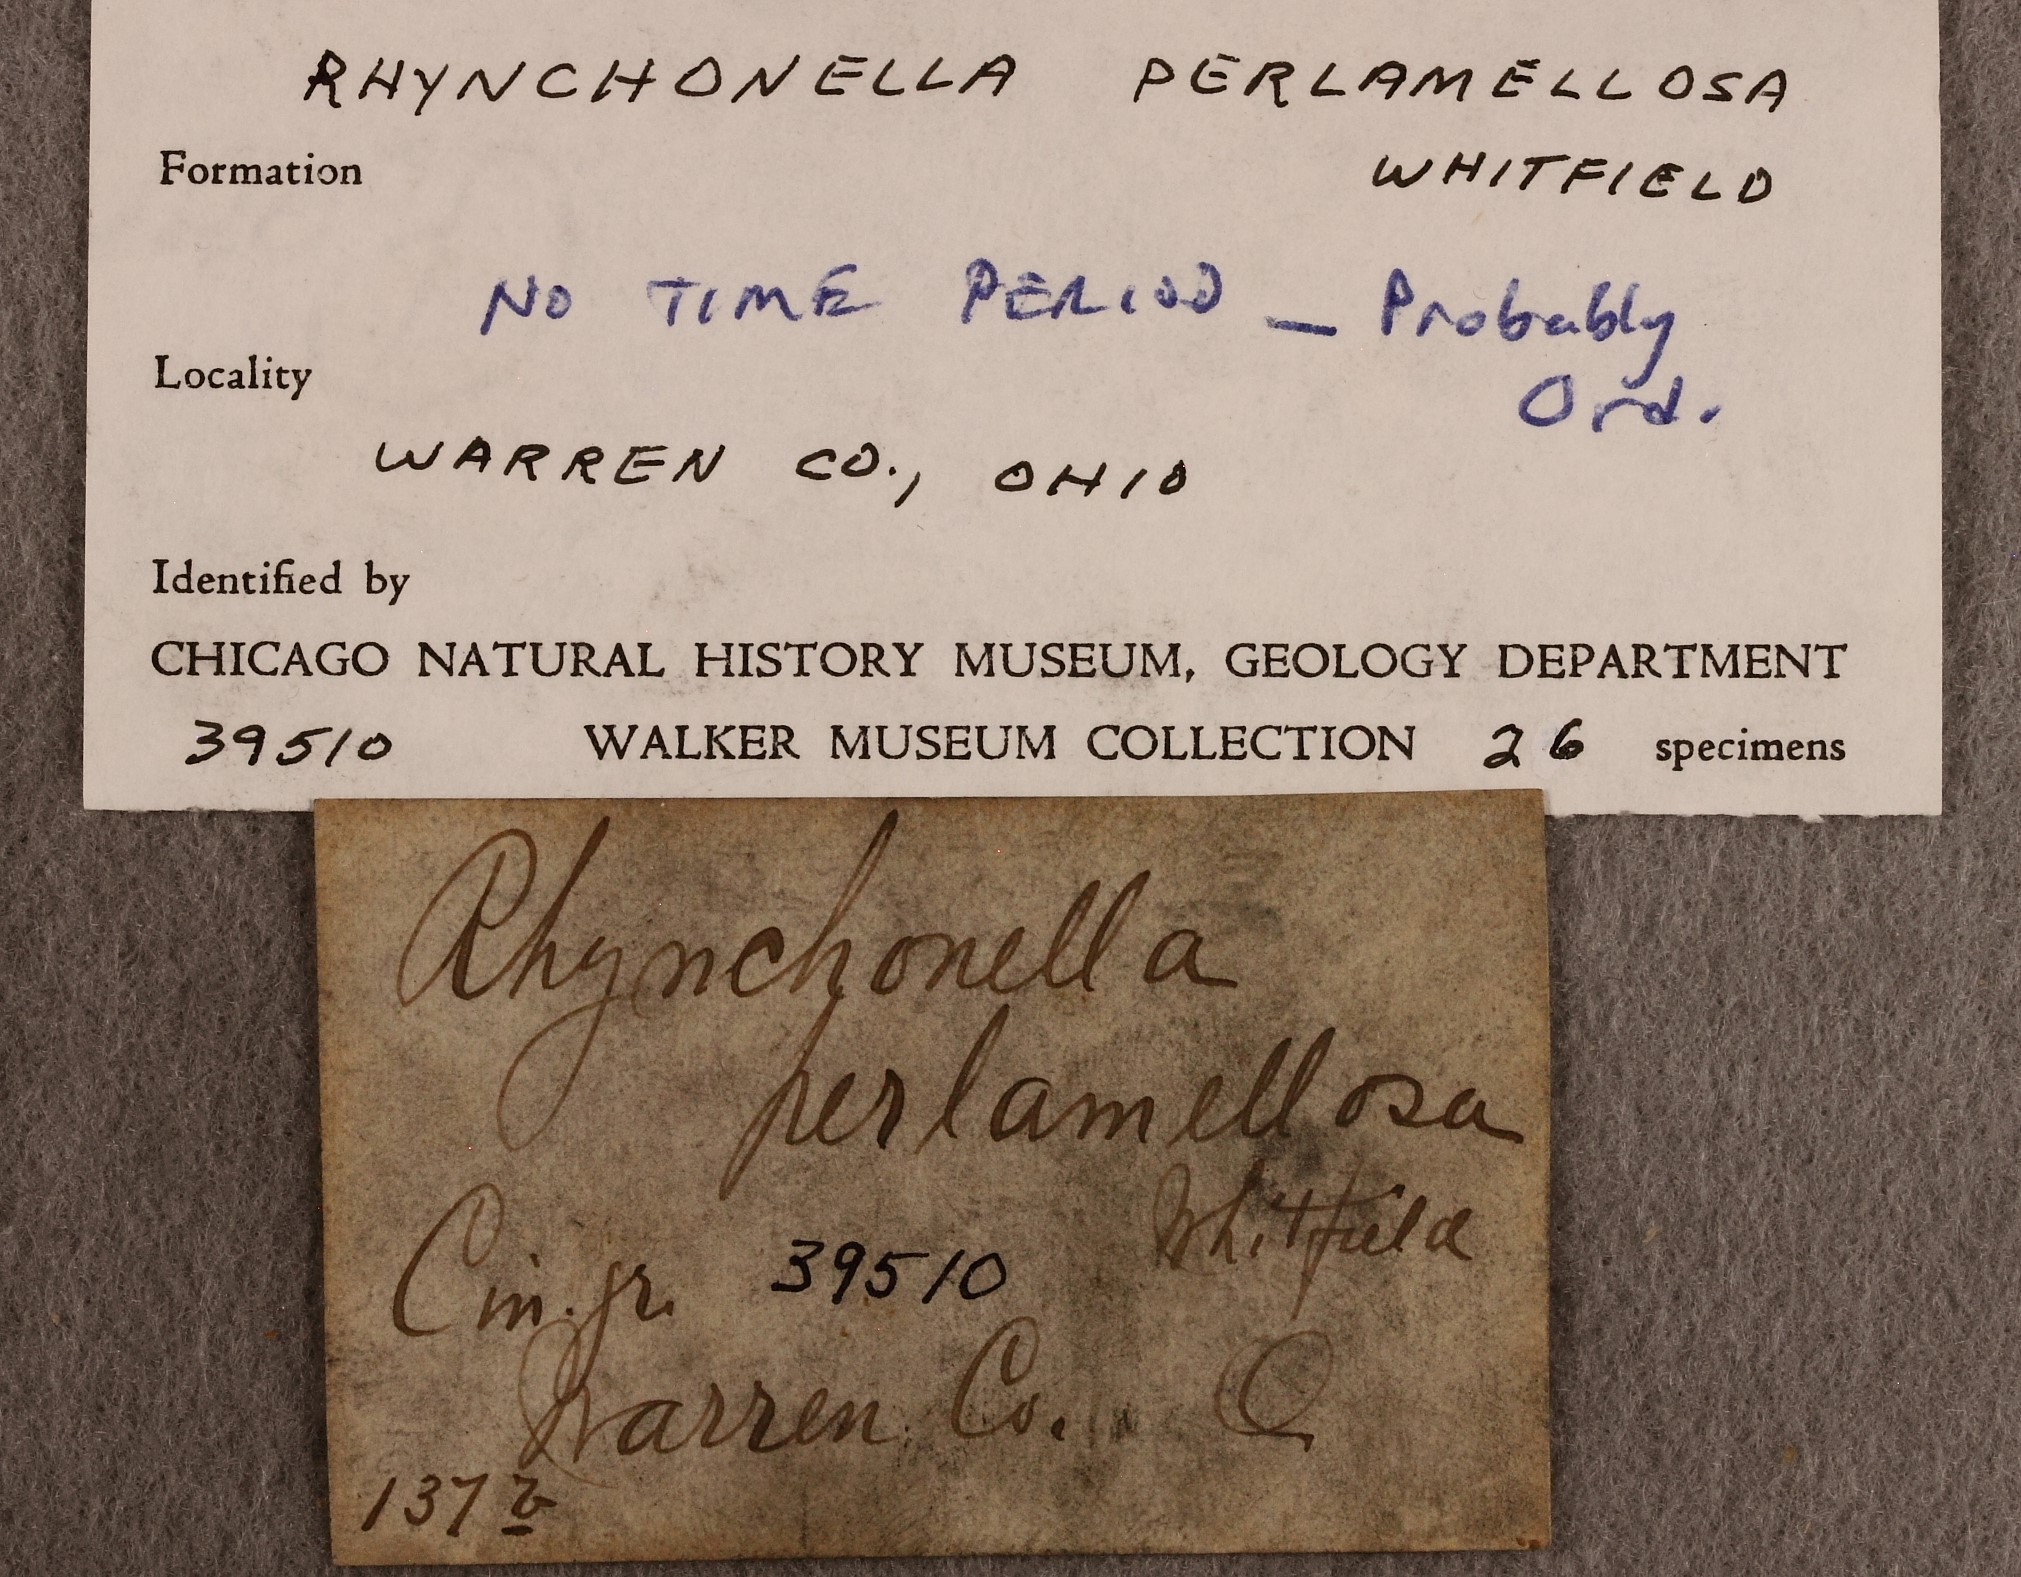 RHYNCHONELLA PERLAMELLOSA
Formation WHITFIELD
NO TIME PERIOD — Probably
Ord.
Locality
WARREN CO., OHIO
Identified by
CHICAGO NATURAL HISTORY MUSEUM, GEOLOGY DEPARTMENT
39510 WALKER MUSEUM COLLECTION 26 specimens
Rhynchonella
perlamellosa
Whitfield
Cin. gr. 39510
Warren Co. O
137